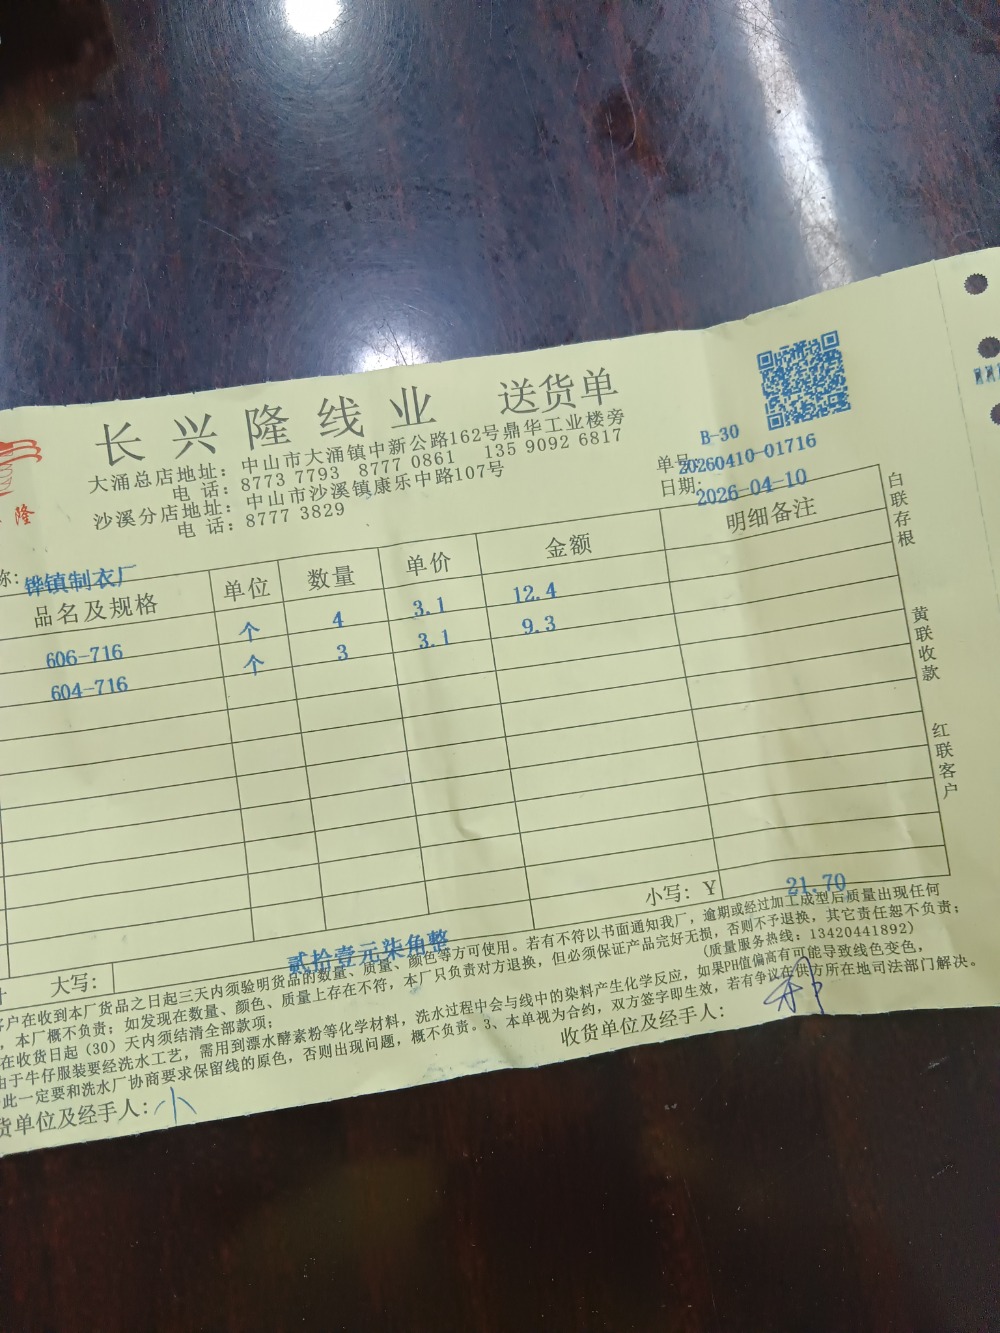 长兴隆线业 送货单
大涌总店地址：中山市大涌镇中新公路162号鼎华工业楼旁
电 话：8773 7793 8777 0861 135 9092 6817
沙溪分店地址：中山市沙溪镇康乐中路107号
电 话：8777 3829
隆
B-30
单号：20260410-01716
日期：2026-04-10
称：铧镇制衣厂
品名及规格 单位 数量 单价 金额 明细备注
606-716 个 4 3.1 12.4
604-716 个 3 3.1 9.3
小写：Y 21.70
大写： 贰拾壹元柒角整
白联存根
黄联收款
红联客户
客户在收到本厂货品之日起三天内须验明货品的数量、质量、颜色等方可使用。若有不符以书面通知我厂，逾期或经过加工成型后质量出现任何
，本厂概不负责；如发现在数量、颜色、质量上存在不符，本厂只负责对方退换，但必须保证产品完好无损，否则不予退换，其它责任恕不负责；
在收货日起（30）天内须结清全部款项； （质量服务热线：13420441892）
由于牛仔服装要经洗水工艺，需用到漂水酵素粉等化学材料，洗水过程中会与线中的染料产生化学反应，如果PH值偏高有可能导致线色变色，
此一定要和洗水厂协商要求保留线的原色，否则出现问题，概不负责。3、本单视为合约，双方签字即生效，若有争议在供方所在地司法部门解决。
货单位及经手人：小
收货单位及经手人：